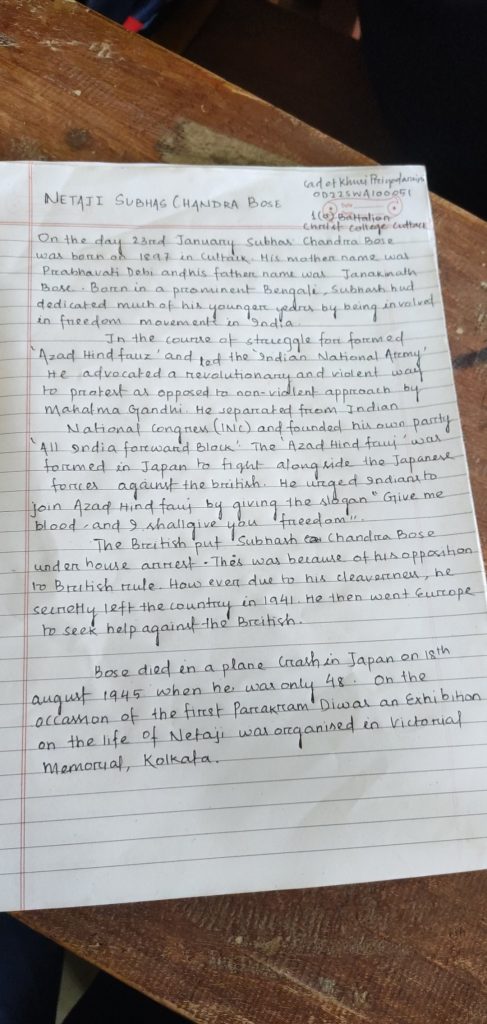 NETAJI SUBHAS CHANDRA BOSE
Cadet Khusi Priyadarsini
OD22SWA100051
1(O) Battalion
Christ College Cuttack
On the day 23rd January Subhas Chandra Bose
was born on 1897 in Cuttack. His mother name was
Prabhavati Debi and his father name was Janakinath
Bose. Born in a prominent Bengali, Subhash had
dedicated much of his younger years by being involved
in freedom movement in India.
In the course of struggle for formed
'Azad Hind fauz' and led the 'Indian National Army'
He advocated a revolutionary and violent way
to protest as opposed to non-violent approach by
Mahatma Gandhi. He separated from Indian
National congress (INC) and founded his own party
'All India forward Block'. The 'Azad Hind fauj' was
formed in Japan to fight alongside the Japanese
forces against the british. He urged Indians to
join Azad Hind fauj by giving the slogan "Give me
blood and I shall give you freedom".
The British put Subhash Chandra Bose
under house arrest. This was because of his opposition
to British rule. How ever due to his cleaverness, he
secretly left the country in 1941. He then went Europe
to seek help against the British.
Bose died in a plane crash in Japan on 18th
august 1945 when he was only 48. On the
occassion of the first Parakram Diwas an Exhibition
on the life of Netaji was organised in Victorial
Memorial, Kolkata.